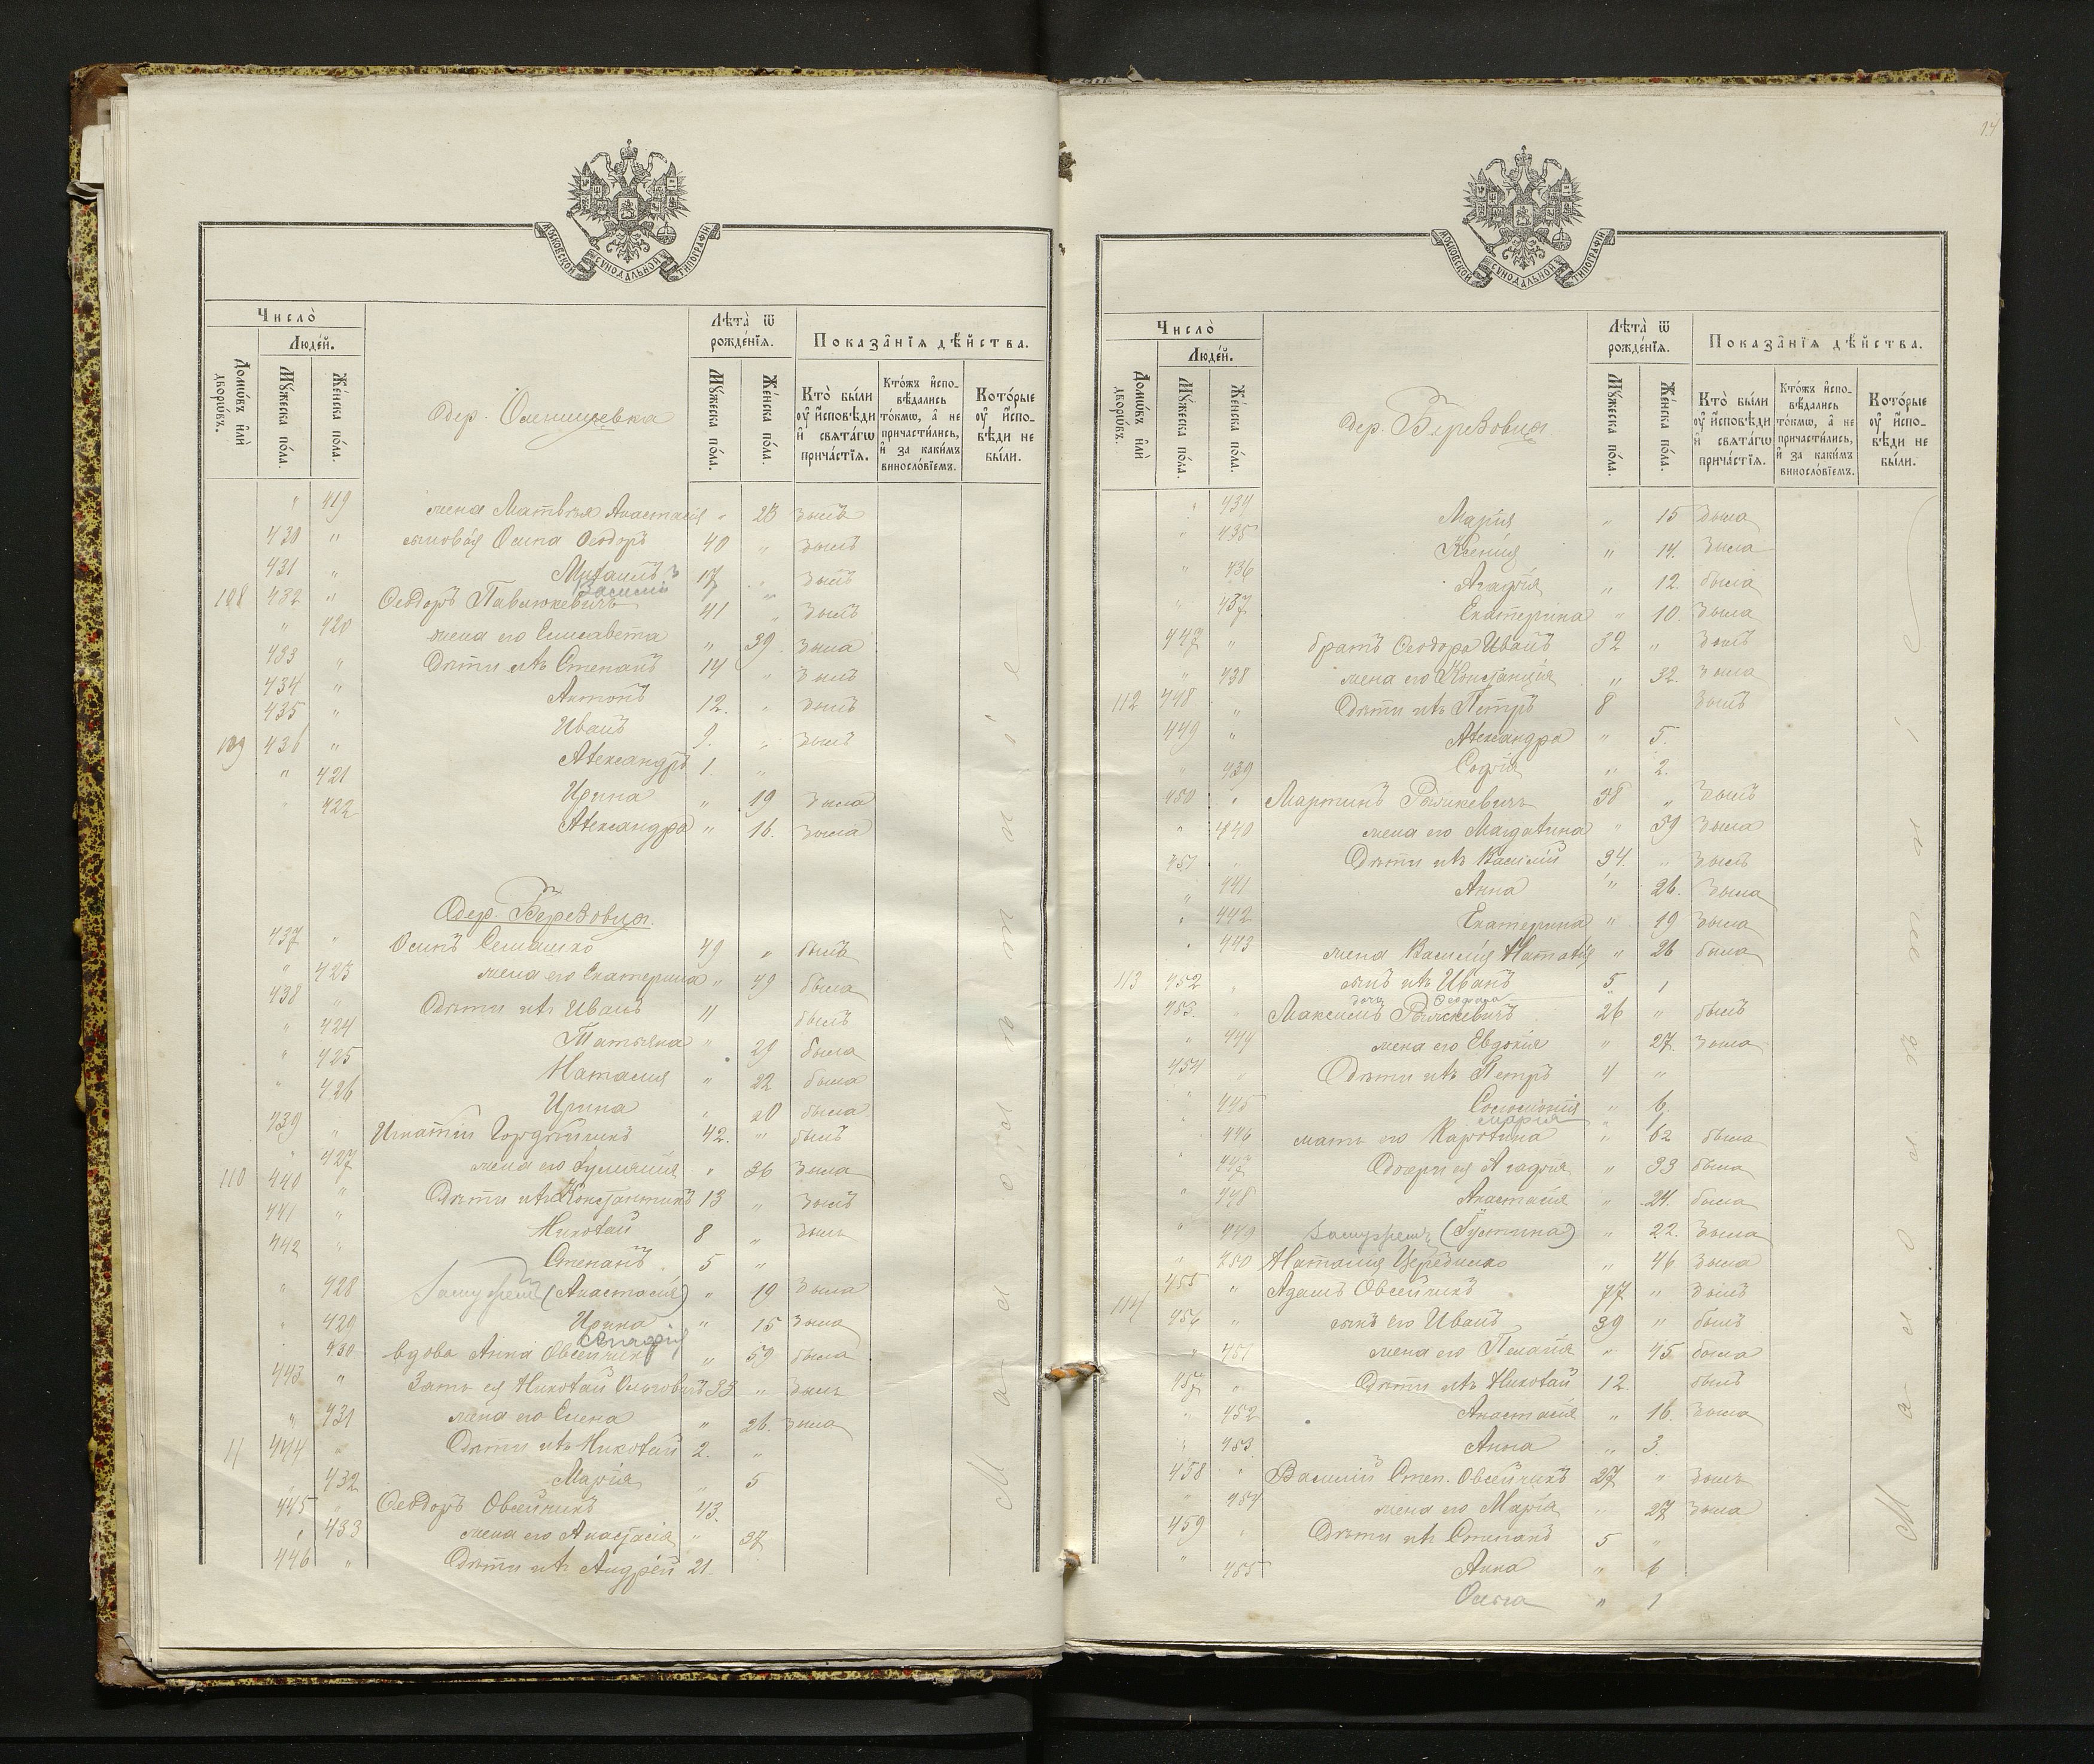 МОСКОВСКОЙ СѴНОДАЛЬНОЙ ТИПОГРАФІИ
Число̀
Люде́й.
Домѡ́въ и҆лѝ дворѡ́въ.
Мꙋ́жеска по́ла.
Же́нска по́ла.
Дер. Олешишевка
Лѣта̀ ѿ рожде́нїѧ.
Мꙋ́жеска по́ла.
Же́нска по́ла.
Показа̑нїѧ дѣ́йства.
Кто̀ бы́ли ᲂу҆ и҆́сповѣди и҆ свѧта́гѡ прича́стїѧ.
Кто́жъ и҆спо-вѣ́дались то́кмѡ, а҆ не причасти́лись, и҆ за каки́мъ винослові́емъ.
Кото́рые ᲂу҆ и҆спо-вѣди не бы́ли.
" 419 жена Матвѣя Анастасія " 28 была
430 " сыновья Осипа Ѳеодоръ 40 " былъ
431 " Михаилъ 17 " былъ
Василій 7 "
108 432 " Ѳеодоръ Павлюкевичъ 41 " былъ
" 420 жена его Елисавета " 39 была
433 " Дѣти ихъ Степанъ 14 " былъ
434 " Антонъ 12. " былъ
435 " Иванъ 9. " былъ
109 436 " Александръ 1. "
" 421 Ирина " 19 была
" 422 Александра " 16. была
Дер. Березовця.
437 " Осипъ Семашко 49 " былъ
" 423 жена его Екатерина " 49 была
438 " Дѣти ихъ Иванъ 11 былъ
" 424 Татьяна " 29 была
" 425 Наталія " 22 была
" 426 Ирина " 20 была
439 " Игнатій 42. " былъ
" 427 жена его " 36 была
110 440 " Дѣти ихъ Константинъ 13 " былъ
441 " Николай 8 " былъ
442 " Степанъ 5 "
" 428 (Анастасія) " 19 была
" 429 Ирина " 15 была
" 430 вдова Анна Овсейчикъ " 59 была
443 " Зять ея Николай 33 " былъ
" 431 жена его Елена " 26. была
11 444 " Дѣти ихъ Николай 2. "
" 432 Марія " 5
445 " Ѳеодоръ Овсейчикъ 43.
" 433 жена его Анастасія " 37
446 " Дѣти ихъ Андрей 21.
14
МОСКОВСКОЙ СѴНОДАЛЬНОЙ ТИПОГРАФІИ
Число̀
Люде́й.
Домѡ́въ и҆лѝ дворѡ́въ.
Мꙋ́жеска по́ла.
Же́нска по́ла.
дер. Березовця.
Лѣта̀ ѿ рожде́нїѧ.
Мꙋ́жеска по́ла.
Же́нска по́ла.
Показа̑нїѧ дѣ́йства.
Кто̀ бы́ли ᲂу҆ и҆́сповѣди и҆ свѧта́гѡ прича́стїѧ.
Кто́жъ и҆спо-вѣ́дались то́кмѡ, а҆ не причасти́лись, и҆ за каки́мъ винослові́емъ.
Кото́рые ᲂу҆ и҆спо-вѣди не бы́ли.
" 434 Марія " 15 была
" 435 Ксенія " 14. была
" 436 Агафія " 12 была
" 437 Екатерина " 10. была
447 " братъ Ѳеодора Иванъ 32 " былъ
" 438 жена его Констанція " 32. была
112 448 " Дѣти ихъ Петръ 8 былъ
449 " Александра " 5.
" 439 Софія " 2.
450 " Мартинъ 58 " былъ
" 440 жена его Магдалина " 59 была
451 " Дѣти ихъ Василій 34. " былъ
" 441 Анна " 26. была
" 442 Екатерина " 19 была
" 443 жена Василія Наталія " 26 была
113 452 " сынъ ихъ Иванъ 5 1
дочь
453. " Максимъ 26 " былъ
" 444 жена его Евдокія " 27. была
454 " Дѣти ихъ Петръ 4 "
" 445 Соломонія " 6.
Марія " 1
" 446 мать его Каролина " 62 была
" 447 Дочери ея Агафія " 33 была
" 448 Анастасія " 24. была
" 449 (Густина) " 22. была
" 450 Наталія " 46 была
455 " Адамъ Овсейчикъ 77 " былъ
114 456 " сынъ его Иванъ 39 " былъ
" 451 жена его Пелагія " 45 была
457 " Дѣти ихъ Николай 12. былъ
" 452 Анастасія " 16. была
" 453 Анна " 3.
458 " Василій Степ. Овсейчикъ 27 " былъ
" 454 жена его Марія " 27 была
459 " Дѣти ихъ Степанъ 5 "
" 455 Анна " 6
Ольга " 1